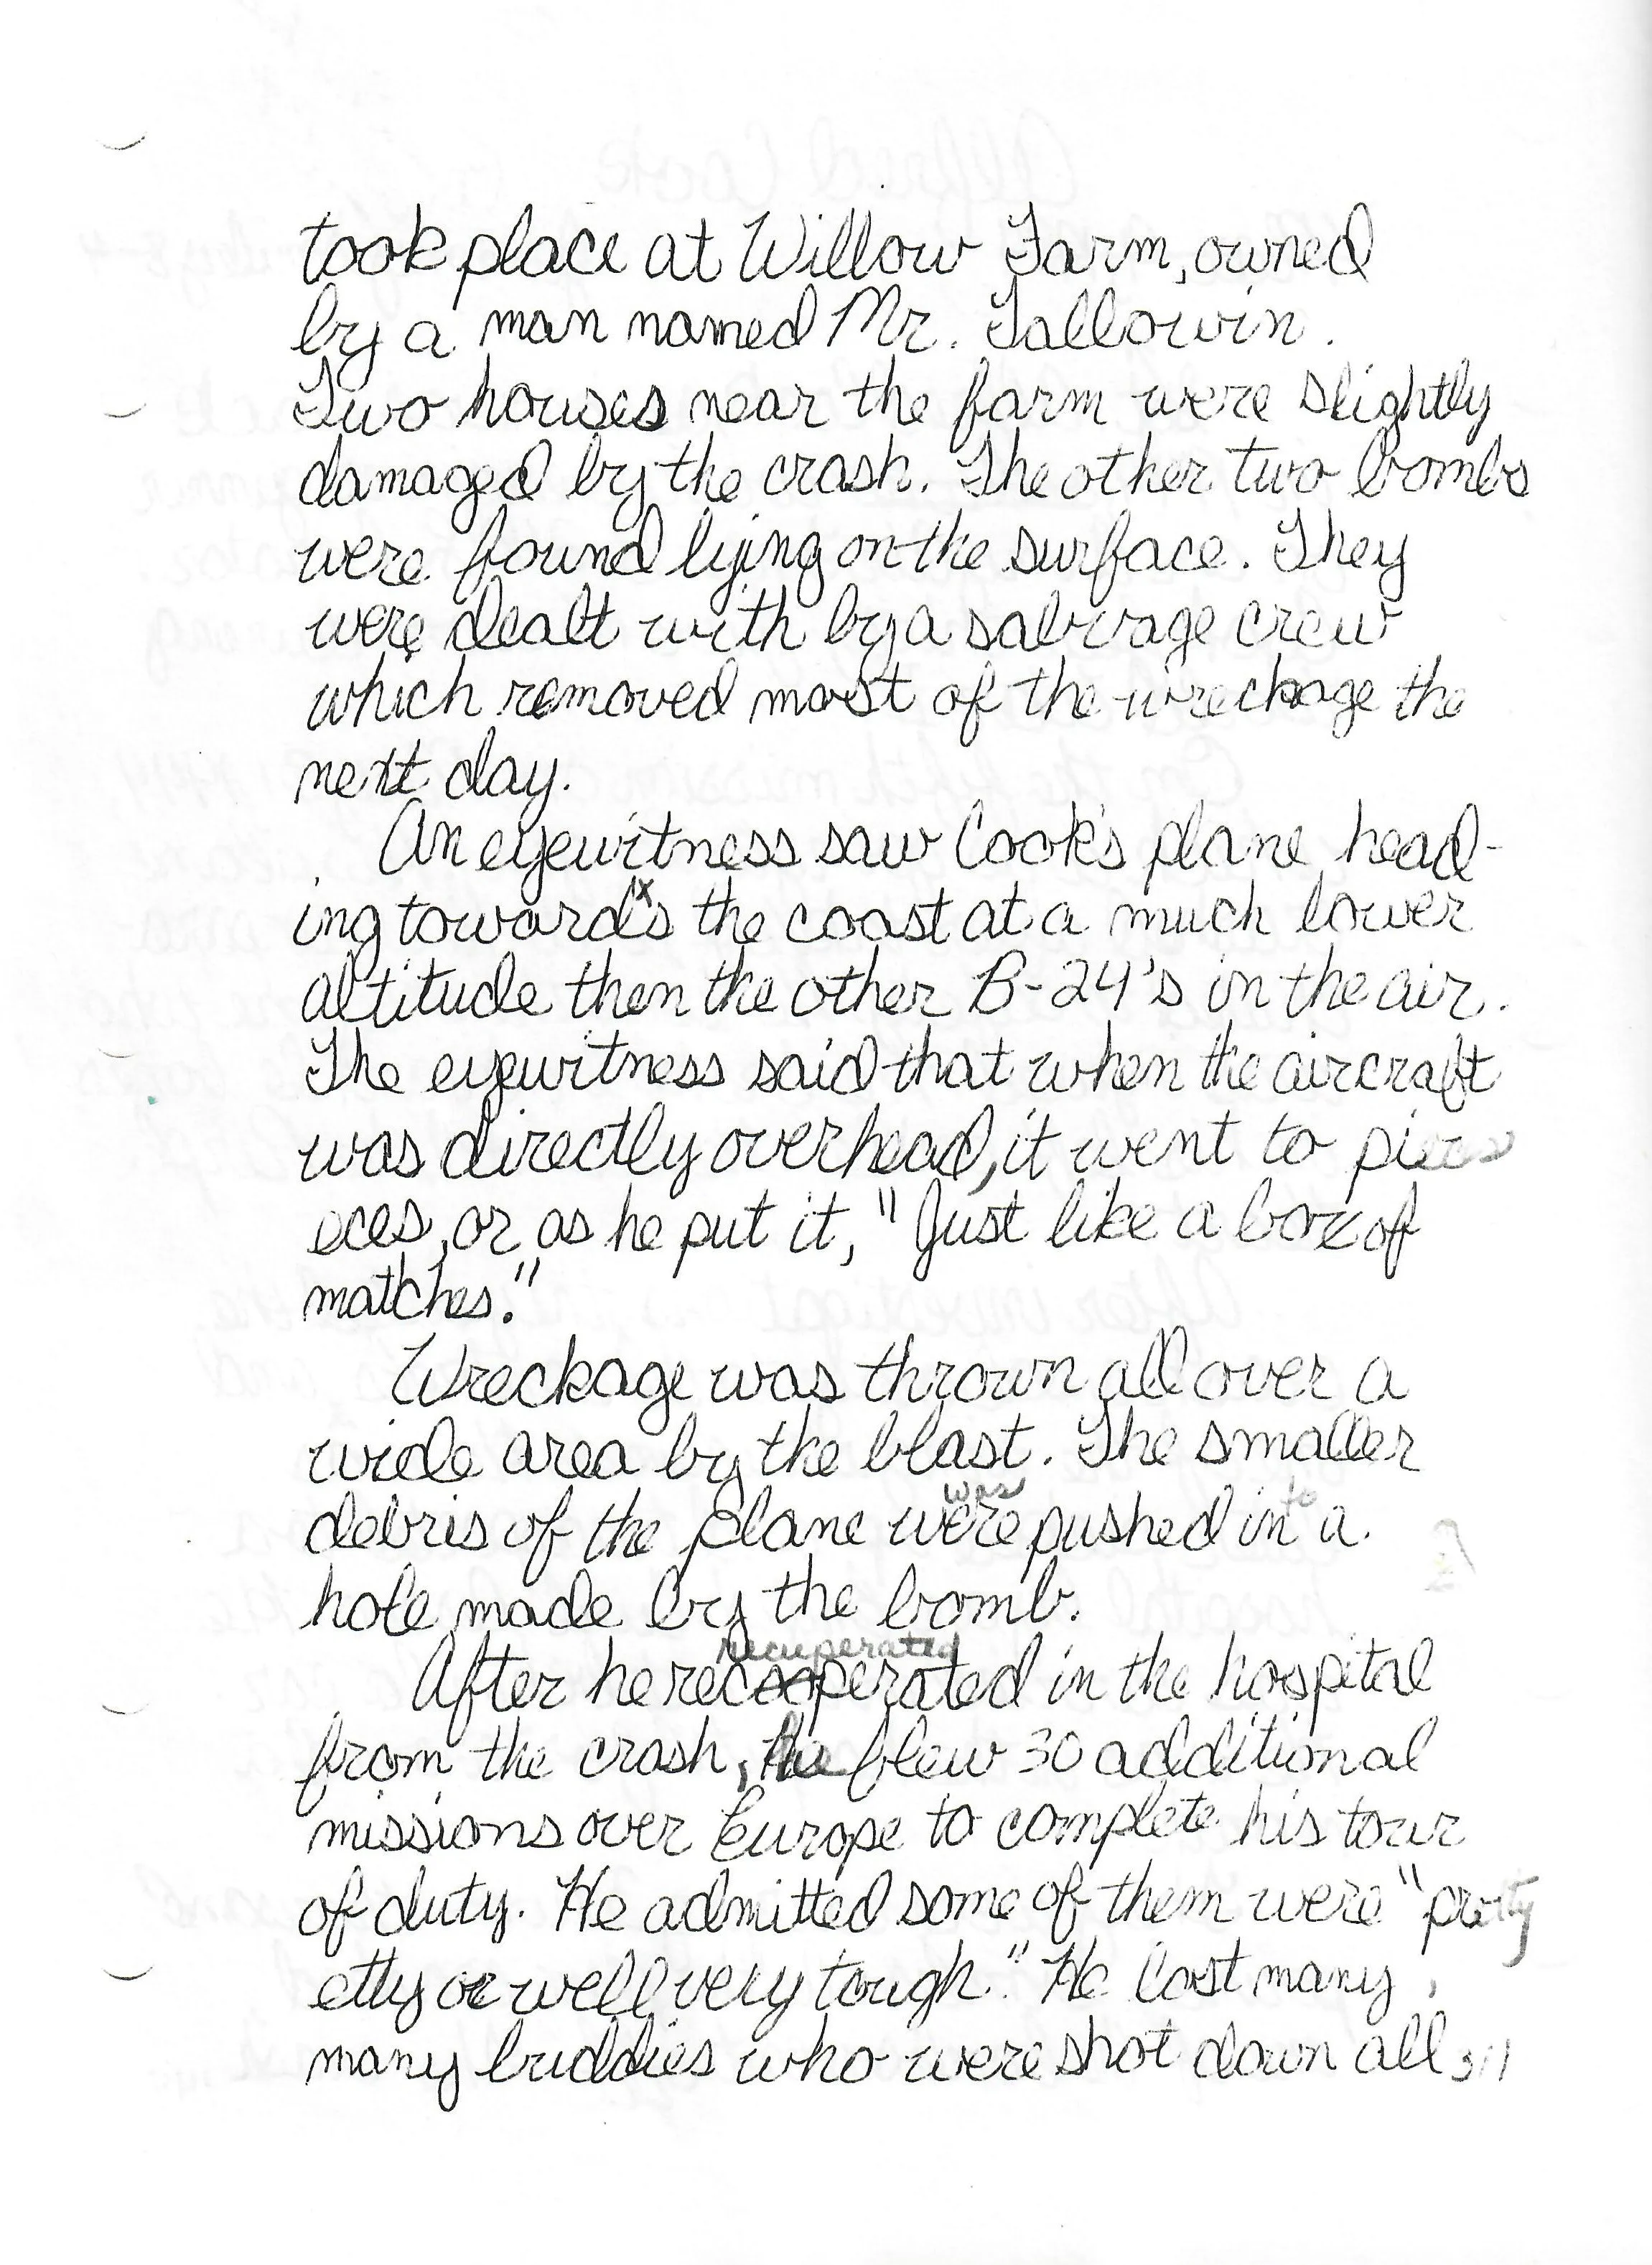 took place at Willow Farm, owned
by a man named Mr. Tallowin.
Two houses near the farm were slightly
damaged by the crash. The other two bombs
were found lying on the surface. They
were dealt with by a salvage crew
which removed most of the wreckage the
next day.
An eyewitness saw Cook's plane head-
ing towards the coast at a much lower
altitude then the other B-24's in the air.
The eyewitness said that when the aircraft
was directly overhead, it went to pieces
eces, or as he put it, "Just like a box of
matches."
Wreckage was thrown all over a
wide area by the blast. The smaller
was to
debris of the plane were pushed in a
hole made by the bomb.
recuperated
After he recooperated in the hospital
from the crash, he flew 30 additional
missions over Europe to complete his tour
of duty. He admitted some of them were "pretty
etty or well very tough." He lost many,
many buddies who were shot down all